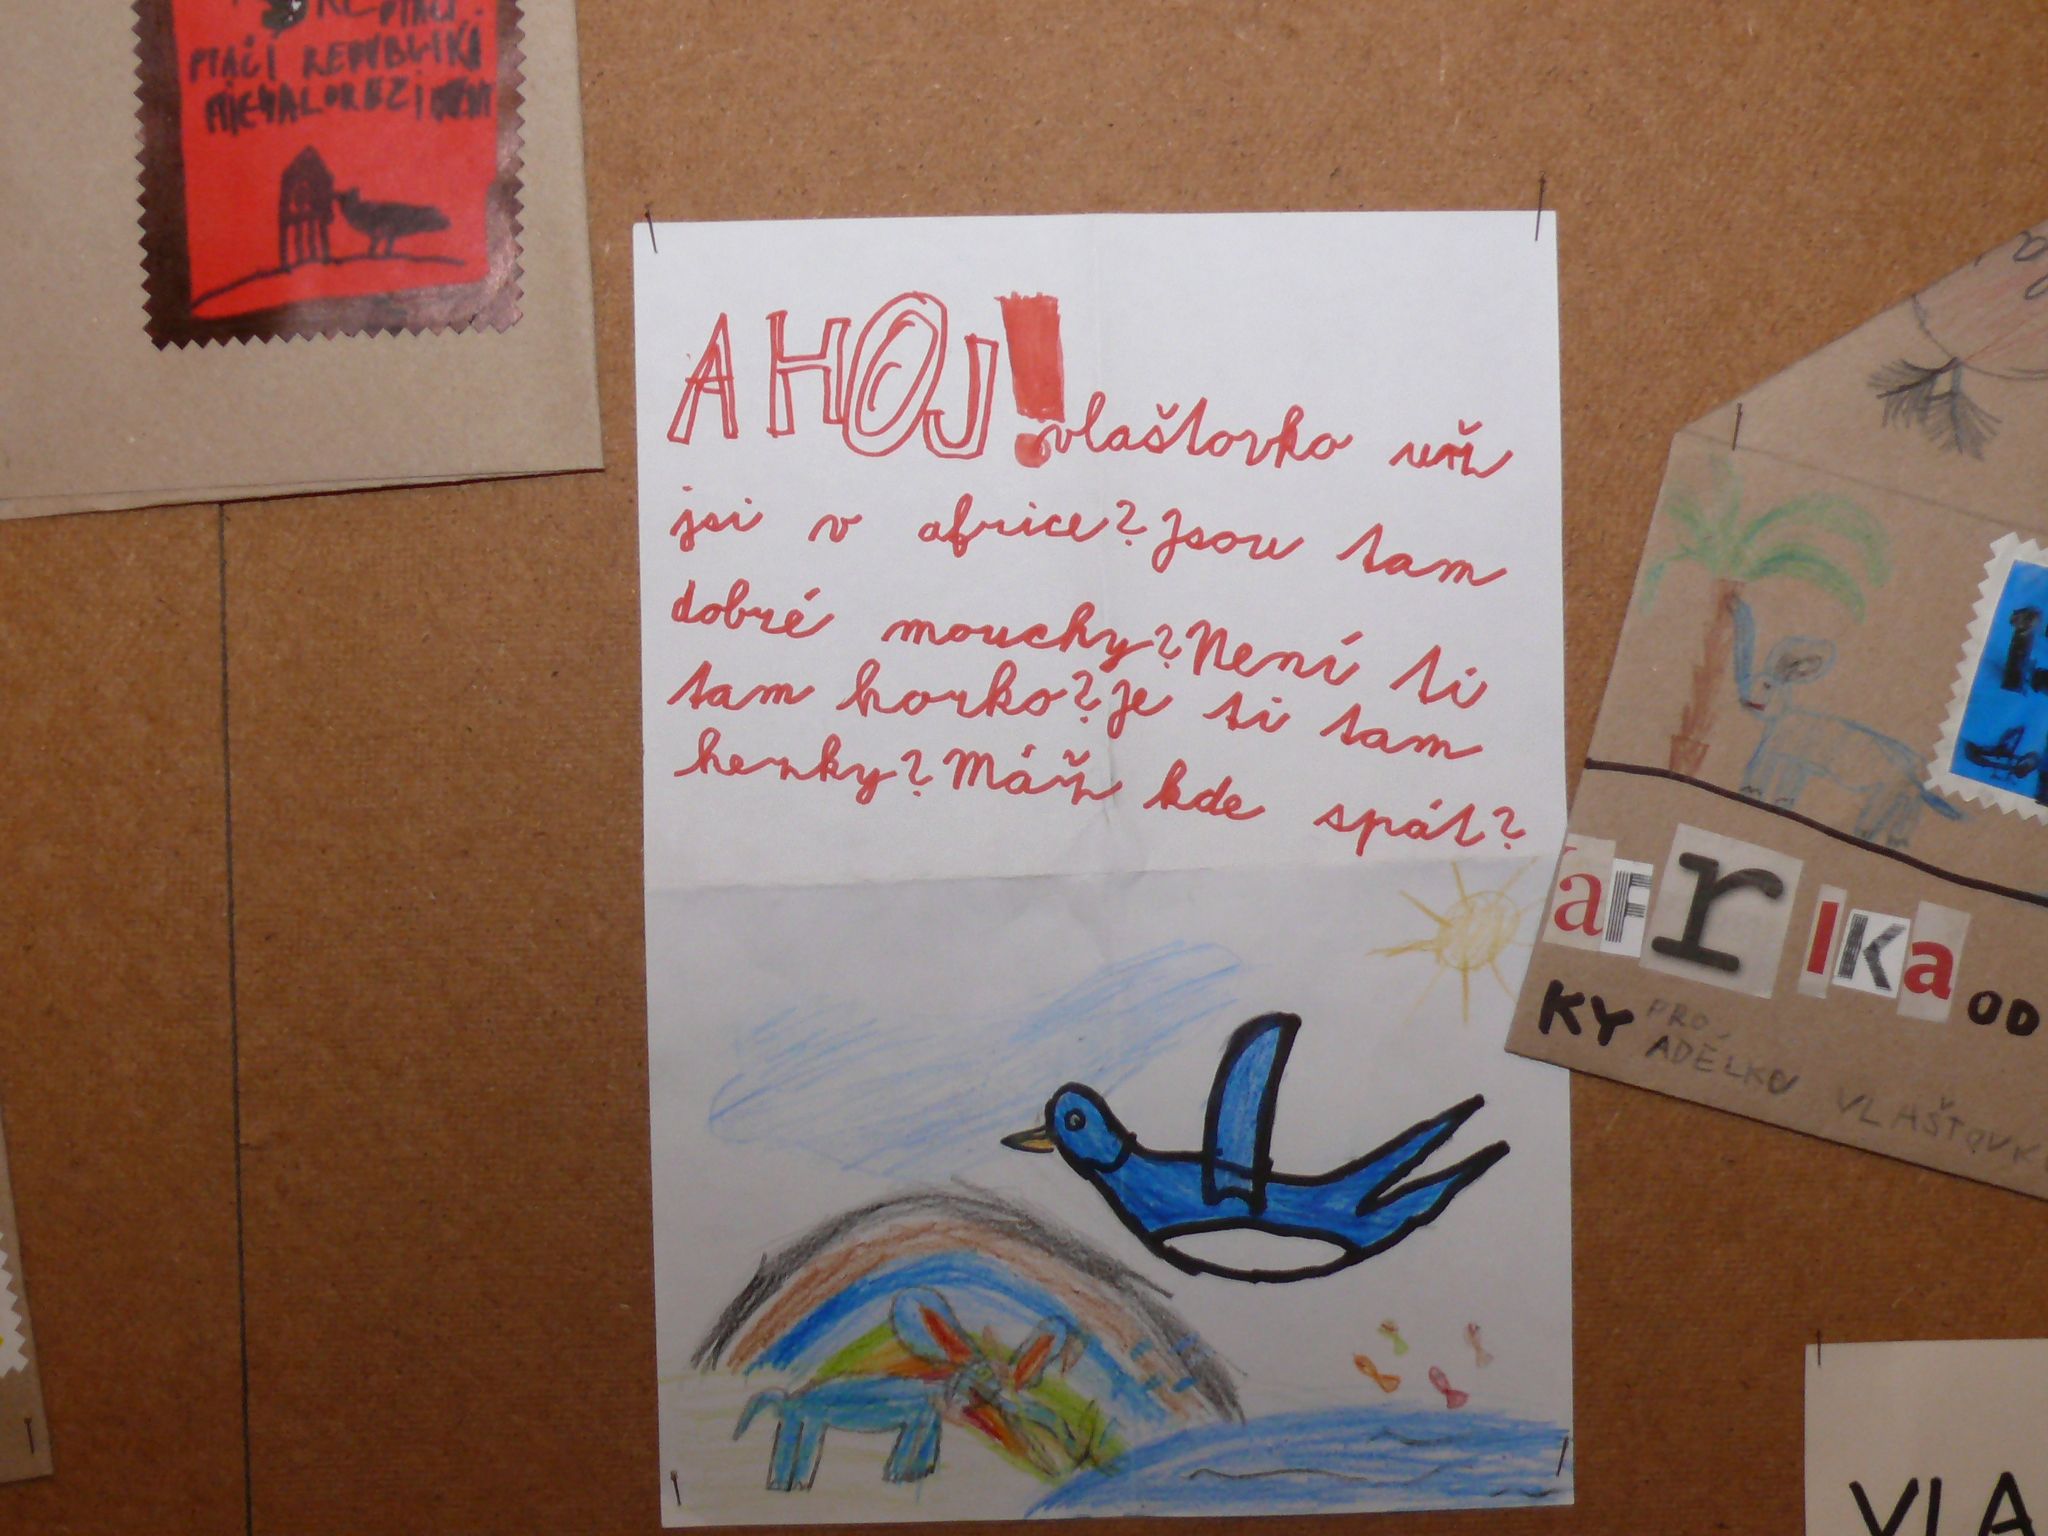 PTAČÍ REPUBLIKA
AHOJ! vlaštovko už
jsi v africe? Jsou tam
dobré mouchy? Není ti
tam horko? Je ti tam
hezky? Máš kde spát?
aFrIKa OD
KY PRO
ADÉLKU VLAŠTOVK
VLA